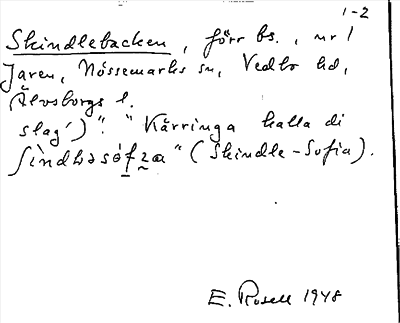 1-2
Skindlebacken, förr bs., nr 1
Jaren, Nössemarks sn, Vedbo hd,
Älvsborgs l.
slag')". "Kärringa kalla di
(Skindle-Sofia).
E. Rosell 1948